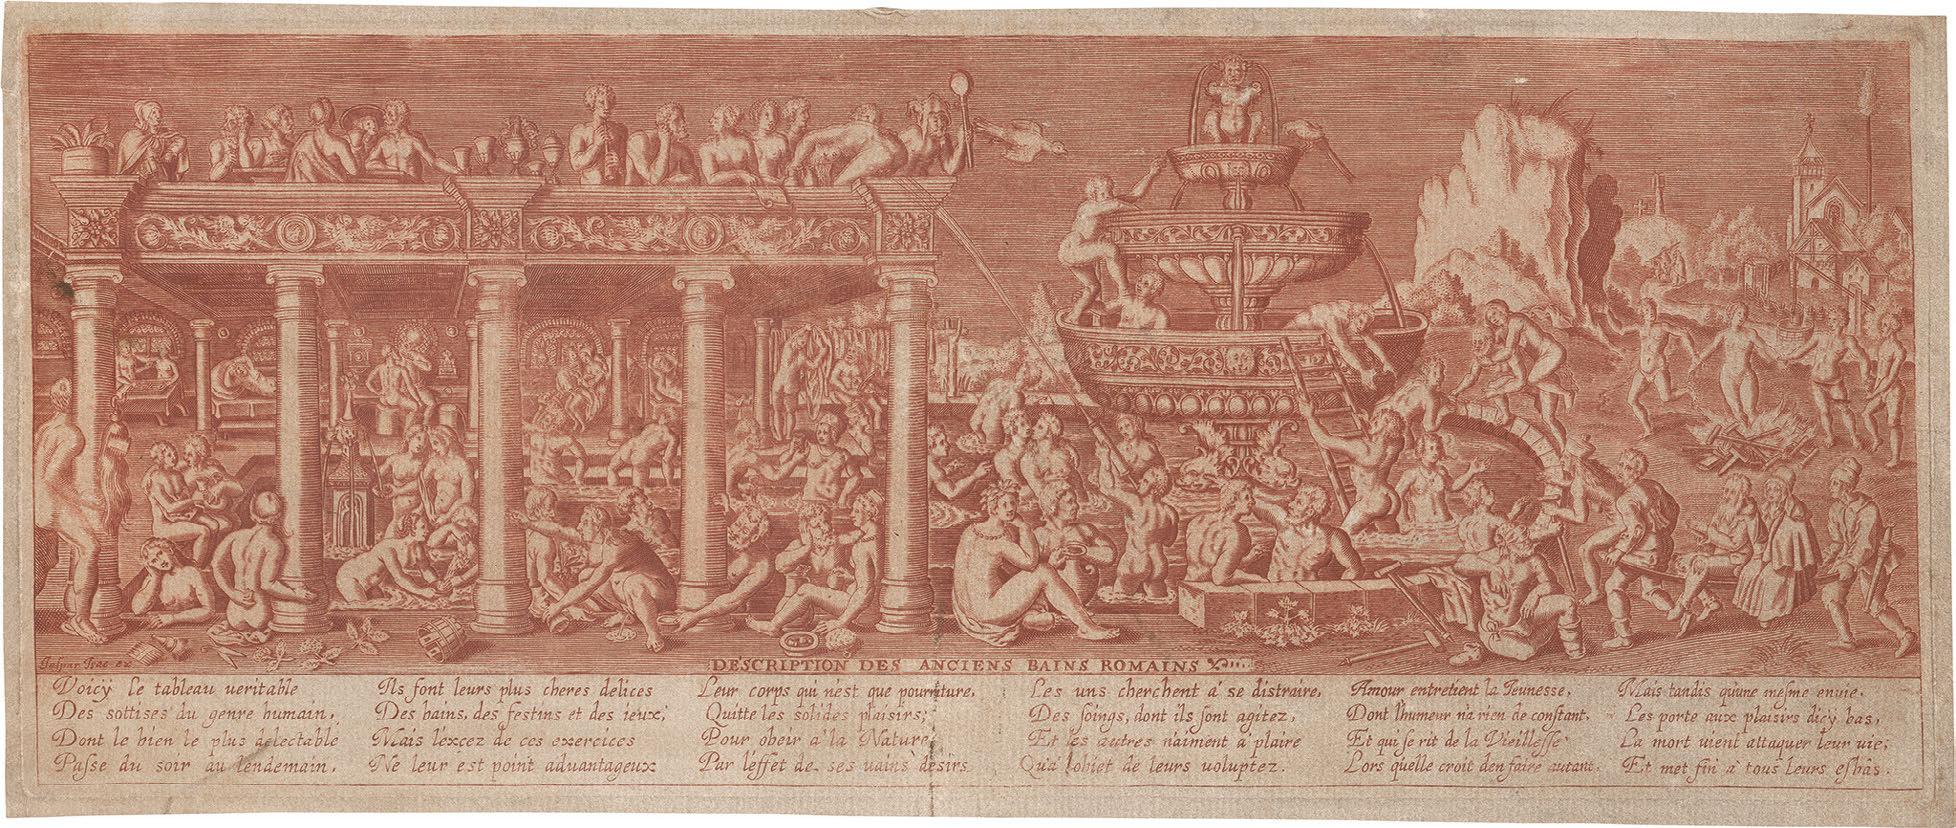 Gaspar Isac ex
DESCRIPTION DES ANCIENS BAINS ROMAINS
Voicÿ le tableau ueritable
Des sottises du genre humain,
Dont le bien le plus delectable
Passe du soir au lendemain.
Ils font leurs plus cheres delices
Des bains, des festins et des ieux;
Mais léxcez de ces exercices
Ne leur est point aduantageux
Leur corps qui n'est que pourriture,
Quitte les solides plaisirs;
Pour obeir a la Nature
Par léffet de ses uains desirs
Les uns cherchent a se distraire,
Des soings, dont ils sont agitez,
Et les autres n'aiment a plaire
Qu'a lobiet de leurs uoluptez.
Amour entretient la Ieunesse,
Dont l'humeur n'a rien de constant,
Et qui se rit de la Vieillesse
Lors quélle croit d'en faire autant.
Mais tandis qu'une mesme enuie,
Les porte aux plaisirs d'icÿ bas,
La mort uient attaquer leur uie,
Et met fin a tous leurs esbâs.